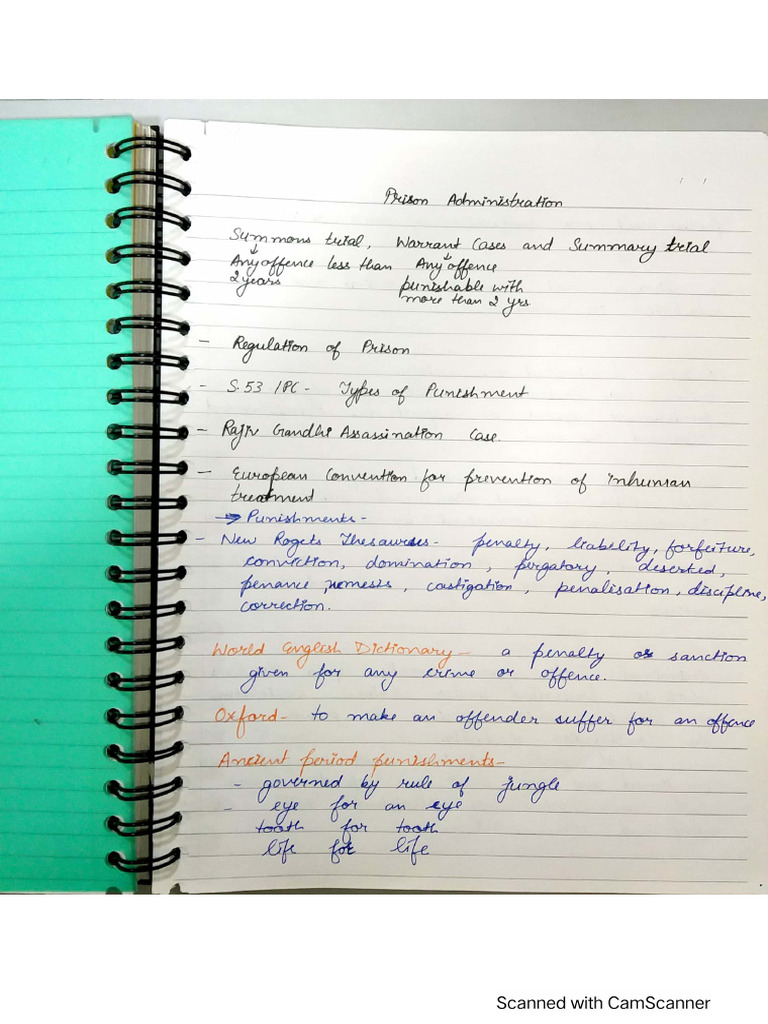 Prison Administration
Summons trial, Warrant Cases and Summary trial
↓ ↓
Any offence less than Any offence
2 years punishable with
more than 2 yrs.
- Regulation of Prison
- S.53 IPC - Types of Punishment
- Rajiv Gandhi Assassination Case.
- European Convention for prevention of inhuman
treatment.
→ Punishments -
- New Rogets Thesaurus - penalty, liability, forfeiture,
conviction, domination, pergatory, deserted,
penance, nemesis, castigation, penalisation, discipline,
correction.
World English Dictionary - a penalty or sanction
given for any crime or offence.
Oxford - to make an offender suffer for an offence
Ancient period punishments -
- governed by rule of jungle
- eye for an eye
tooth for tooth
life for life
Scanned with CamScanner